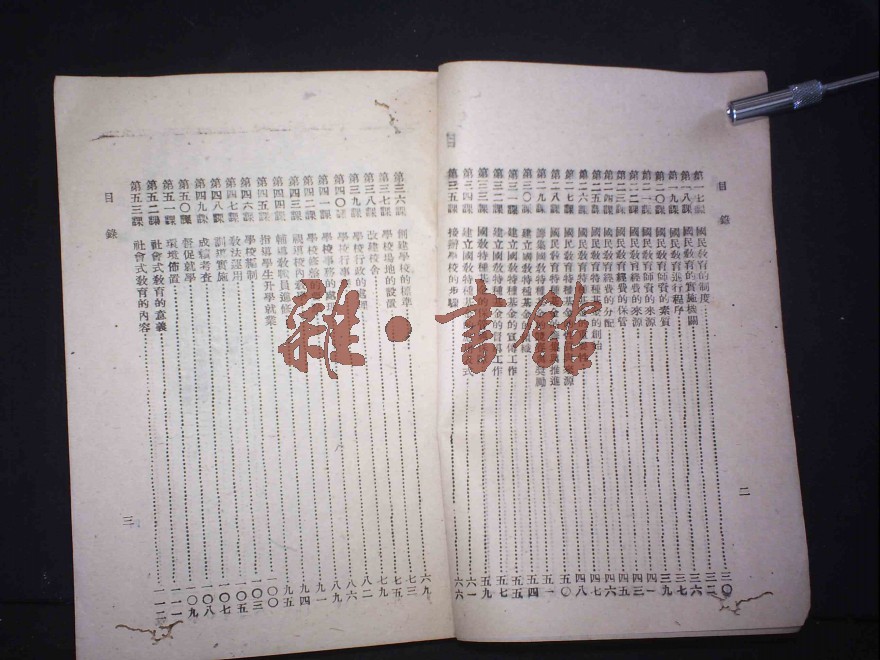 目錄
第一七課 國民教育的制度 三〇
第一八課 國民教育的實施機關 三二
第一九課 國民教育進行程序 三七
第二〇課 國民教育師資的素質 三九
第二一課 國民教育師資的來源 四一
第二二課 國民教育經費的來源 四三
第二三課 國民教育經費的保管 四五
第二四課 國民教育經費的分配 四六
第二五課 國民教育特種 的創始 四七
第二六課 國民教育特種 性 四八
第二七課 國民教育特種基 來源 五〇
第二八課 國民教育特種基金 推進 五一
第二九課 籌集國教特種基金 獎勵 五四
第三〇課 國教特種基金 五五
第三一課 建立國教特種基金的宣傳工作 五五
第三二課 建立國教特種基金的督導工作 五七
第三三課 國教特種基金的保 五九
第三四課 建立國教特種基 式 六一
第三五課 接辦學校的步驟 六六
二
第三六課 創建學校的標準 六九
第三七課 學校場地的設置 七三
第三八課 改建校舍 七五
第三九課 學校行政的處理 七九
第四〇課 學校行事 八二
第四一課 學校事務的處理 八六
第四二課 學校修繕的 八九
第四三課 視導校內教 九一
第四四課 輔導教職員進修 九四
第四五課 指導學生升學就業 九五
第四六課 學校編制 一〇〇
第四七課 教法運用 一〇三
第四八課 訓導實施 一〇五
第四九課 成績考查 一〇七
第五〇課 督促就學 一〇八
第五一課 環境佈置 一〇九
第五二課 社會式教育的意義 一一一
第五三課 社會式教育的內容 一一三
目錄
三
雜·書館